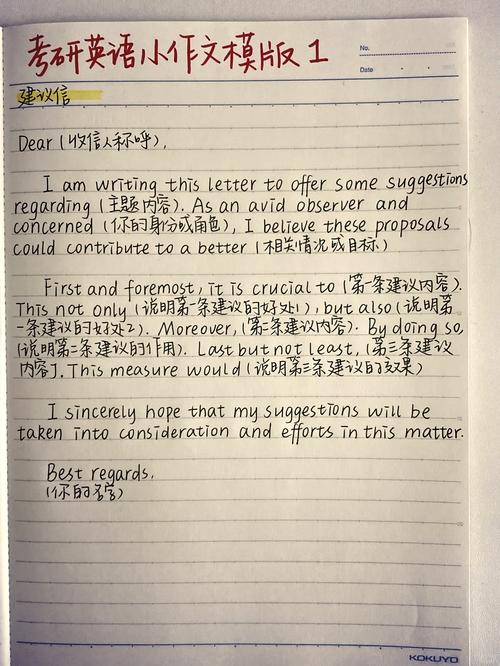 考研英语小作文模版1
No.
Date
建议信
Dear (收信人称呼),
I am writing this letter to offer some suggestions
regarding (主题内容). As an avid observer and
concerned (你的身份或角色), I believe these proposals
could contribute to a better (相关情况或目标)
First and foremost, it is crucial to (第一条建议内容).
This not only (说明第一条建议的好处1), but also (说明第
一条建议的好处2). Moreover, (第二条建议内容). By doing so,
(说明第二条建议的作用). Last but not least, (第三条建议
内容). This measure would (说明第三条建议的效果)
I sincerely hope that my suggestions will be
taken into consideration and efforts in this matter.
Best regards,
(你的名字)
KOKUYO